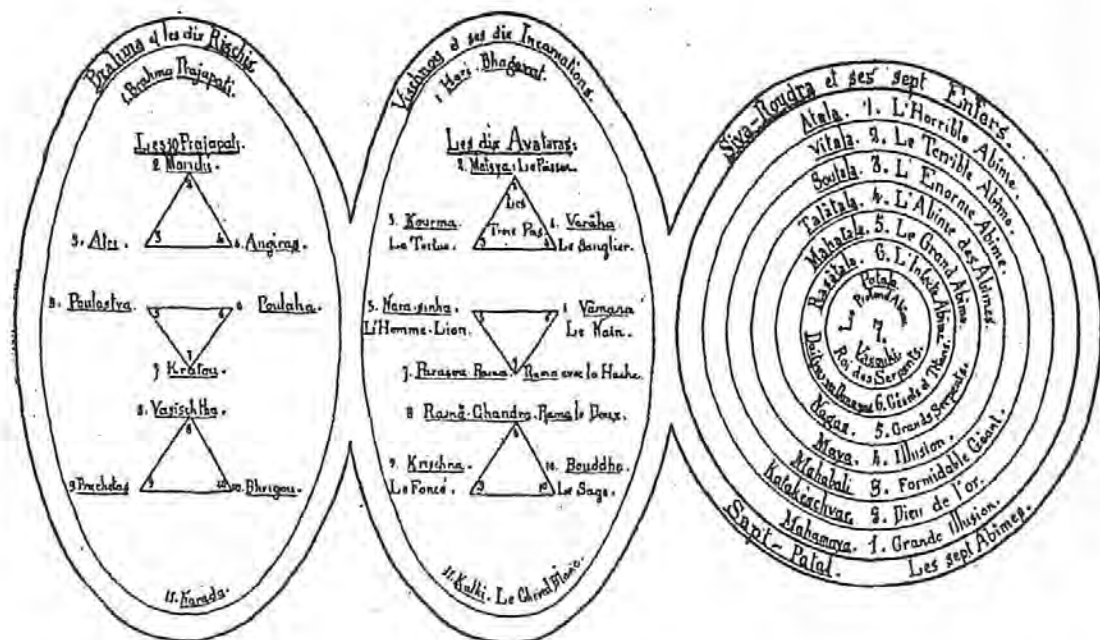 Brahma et les dix Rischis
1. Brahma Prajapati.
Les 10 Prajapatis
2. Maridis
2
3. Atri.
3
4
4. Angiras.
5. Poulastya
5
6
6. Poulaha
7
7. Kratou.
8. Vasischtha.
8
9. Prachetas
9
10
10. Bhrigou.
11. Narada.
Vischnou et ses dix Incarnations.
1. Hari. Bhagavat.
Les dix Avataras.
2. Matsya: Le Poisson.
2
Les
Trois Pas
3. Kourma
La Tortue.
3
4
4. Varâha
Le Sanglier
5. Nara-sinha.
L'Homme-Lion.
5
6
6. Vâmana
Le Nain.
7
7. Parasra Rama. Rama avec la Hache.
8. Ramâ-Chandra. Rama le Doux.
8
9. Krischna
Le Foncé.
9
10
10. Bouddha.
Le Sage.
11. Kalki. Le Cheval Blanc.
Siva-Roudra et ses sept Enfers.
Atala. 1. L'Horrible Abîme.
Vitala. 2. Le Terrible Abîme.
Soutala. 3. L'Enorme Abîme.
Talâtala. 4. L'Abîme des Abîmes.
Mahatala. 5. Le Grand Abîme.
Rasâtala. 6. L'Infecte Abîme.
Patala.
Le Profond Abîme.
7.
Vasouki.
Roi des Serpents.
6. Géants et Titans.
Nagas. 5. Grands Serpents.
Maya. 4. Illusion.
Mahabali 3. Formidable Géant.
Katakeschvar. 2. Dieu de l'or.
Mahamaya. 1. Grande Illusion.
Sapt-Patal. Les sept Abîmes.